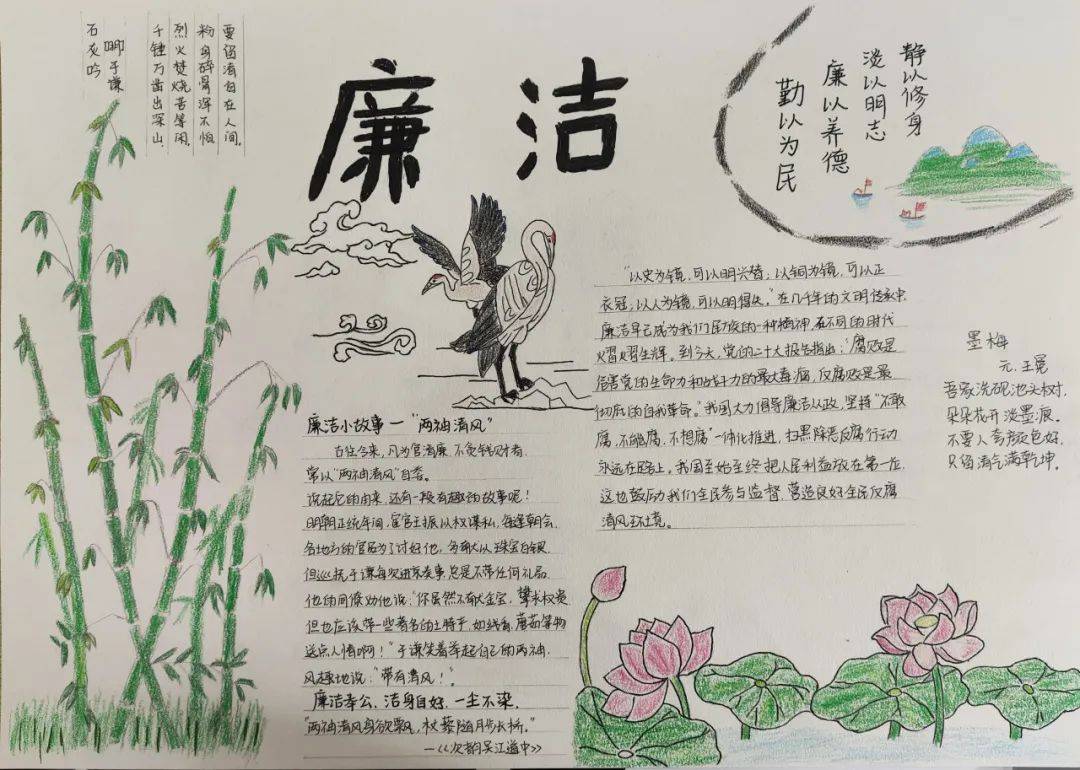 石灰吟
明于谦
千锤万凿出深山
烈火焚烧若等闲。
粉身碎骨浑不怕
要留清白在人间。
廉 洁
静以修身
淡以明志
廉以养德
勤以为民
廉洁小故事一“两袖清风”
古往今来，凡为官清廉，不贪钱财者，
常以“两袖清风”自居。
说起它的由来，还有一段有趣的故事呢！
明朝正统年间，宦官王振以权谋私，每逢朝会，
各地方的官员为了讨好他，多献以珠宝白银
但巡抚于谦每次进京奏事总是不带任何礼品
他的同僚劝他说：“你虽然不献金宝，攀求权贵
但也应该带一些著名的土特产，如线香，蘑菇等物
送点人情啊！”于谦笑着举起自己的两袖
风趣地说：“带有清风！”
廉洁奉公，洁身自好，一尘不染，
“两袖清风身欲飘，杖藜随月步长桥。”
—《次韵吴江道中》
“以史为镜，可以明兴替；以铜为镜，可以正
衣冠；以人为镜，可以明得失。”在几千年的文明传承中
廉洁早已成为我们民族的一种精神，在不同的时代
熠熠生辉。到今天，党的二十大报告指出：“腐败是
危害党的生命力和战斗力的最大毒瘤，反腐败是最
彻底的自我革命。”我国大力倡导廉洁从政，坚持“不敢
腐、不能腐、不想腐”一体化推进，扫黑除恶反腐行动
永远在路上。我国至始至终把人民利益放在第一位
这也鼓励我们全民参与监督，营造良好全民反腐
清风环境。
墨梅
元．王冕
吾家洗砚池头树，
朵朵花开淡墨痕。
不要人夸颜色好，
只留清气满乾坤。